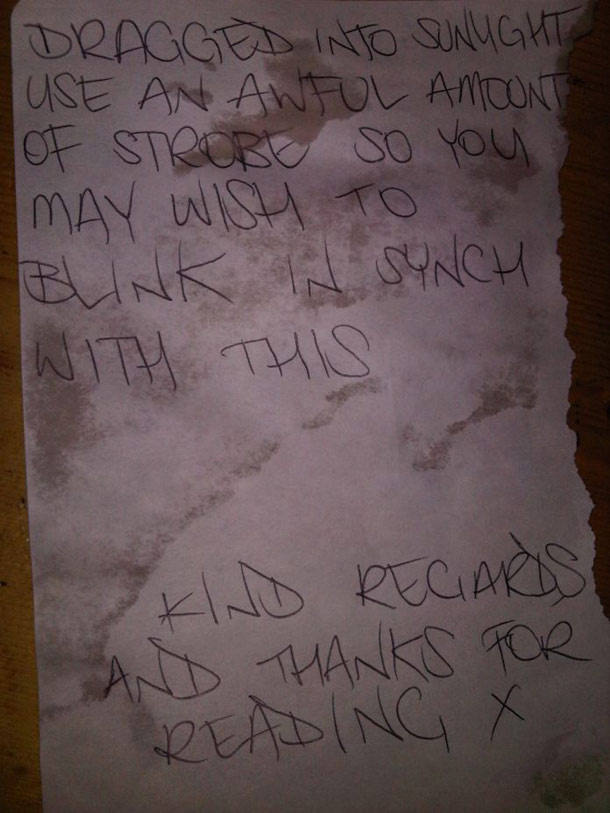 DRAGGED INTO SUNLIGHT
USE AN AWFUL AMOUNT
OF STROBE SO YOU
MAY WISH TO
BLINK IN SYNCH
WITH THIS
KIND REGARDS
AND THANKS FOR
READING X